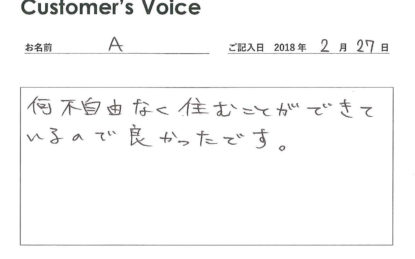 Customer's Voice
お名前 A ご記入日 2018年 2月27日
何不自由なく住むことができて
いるので良かったです。